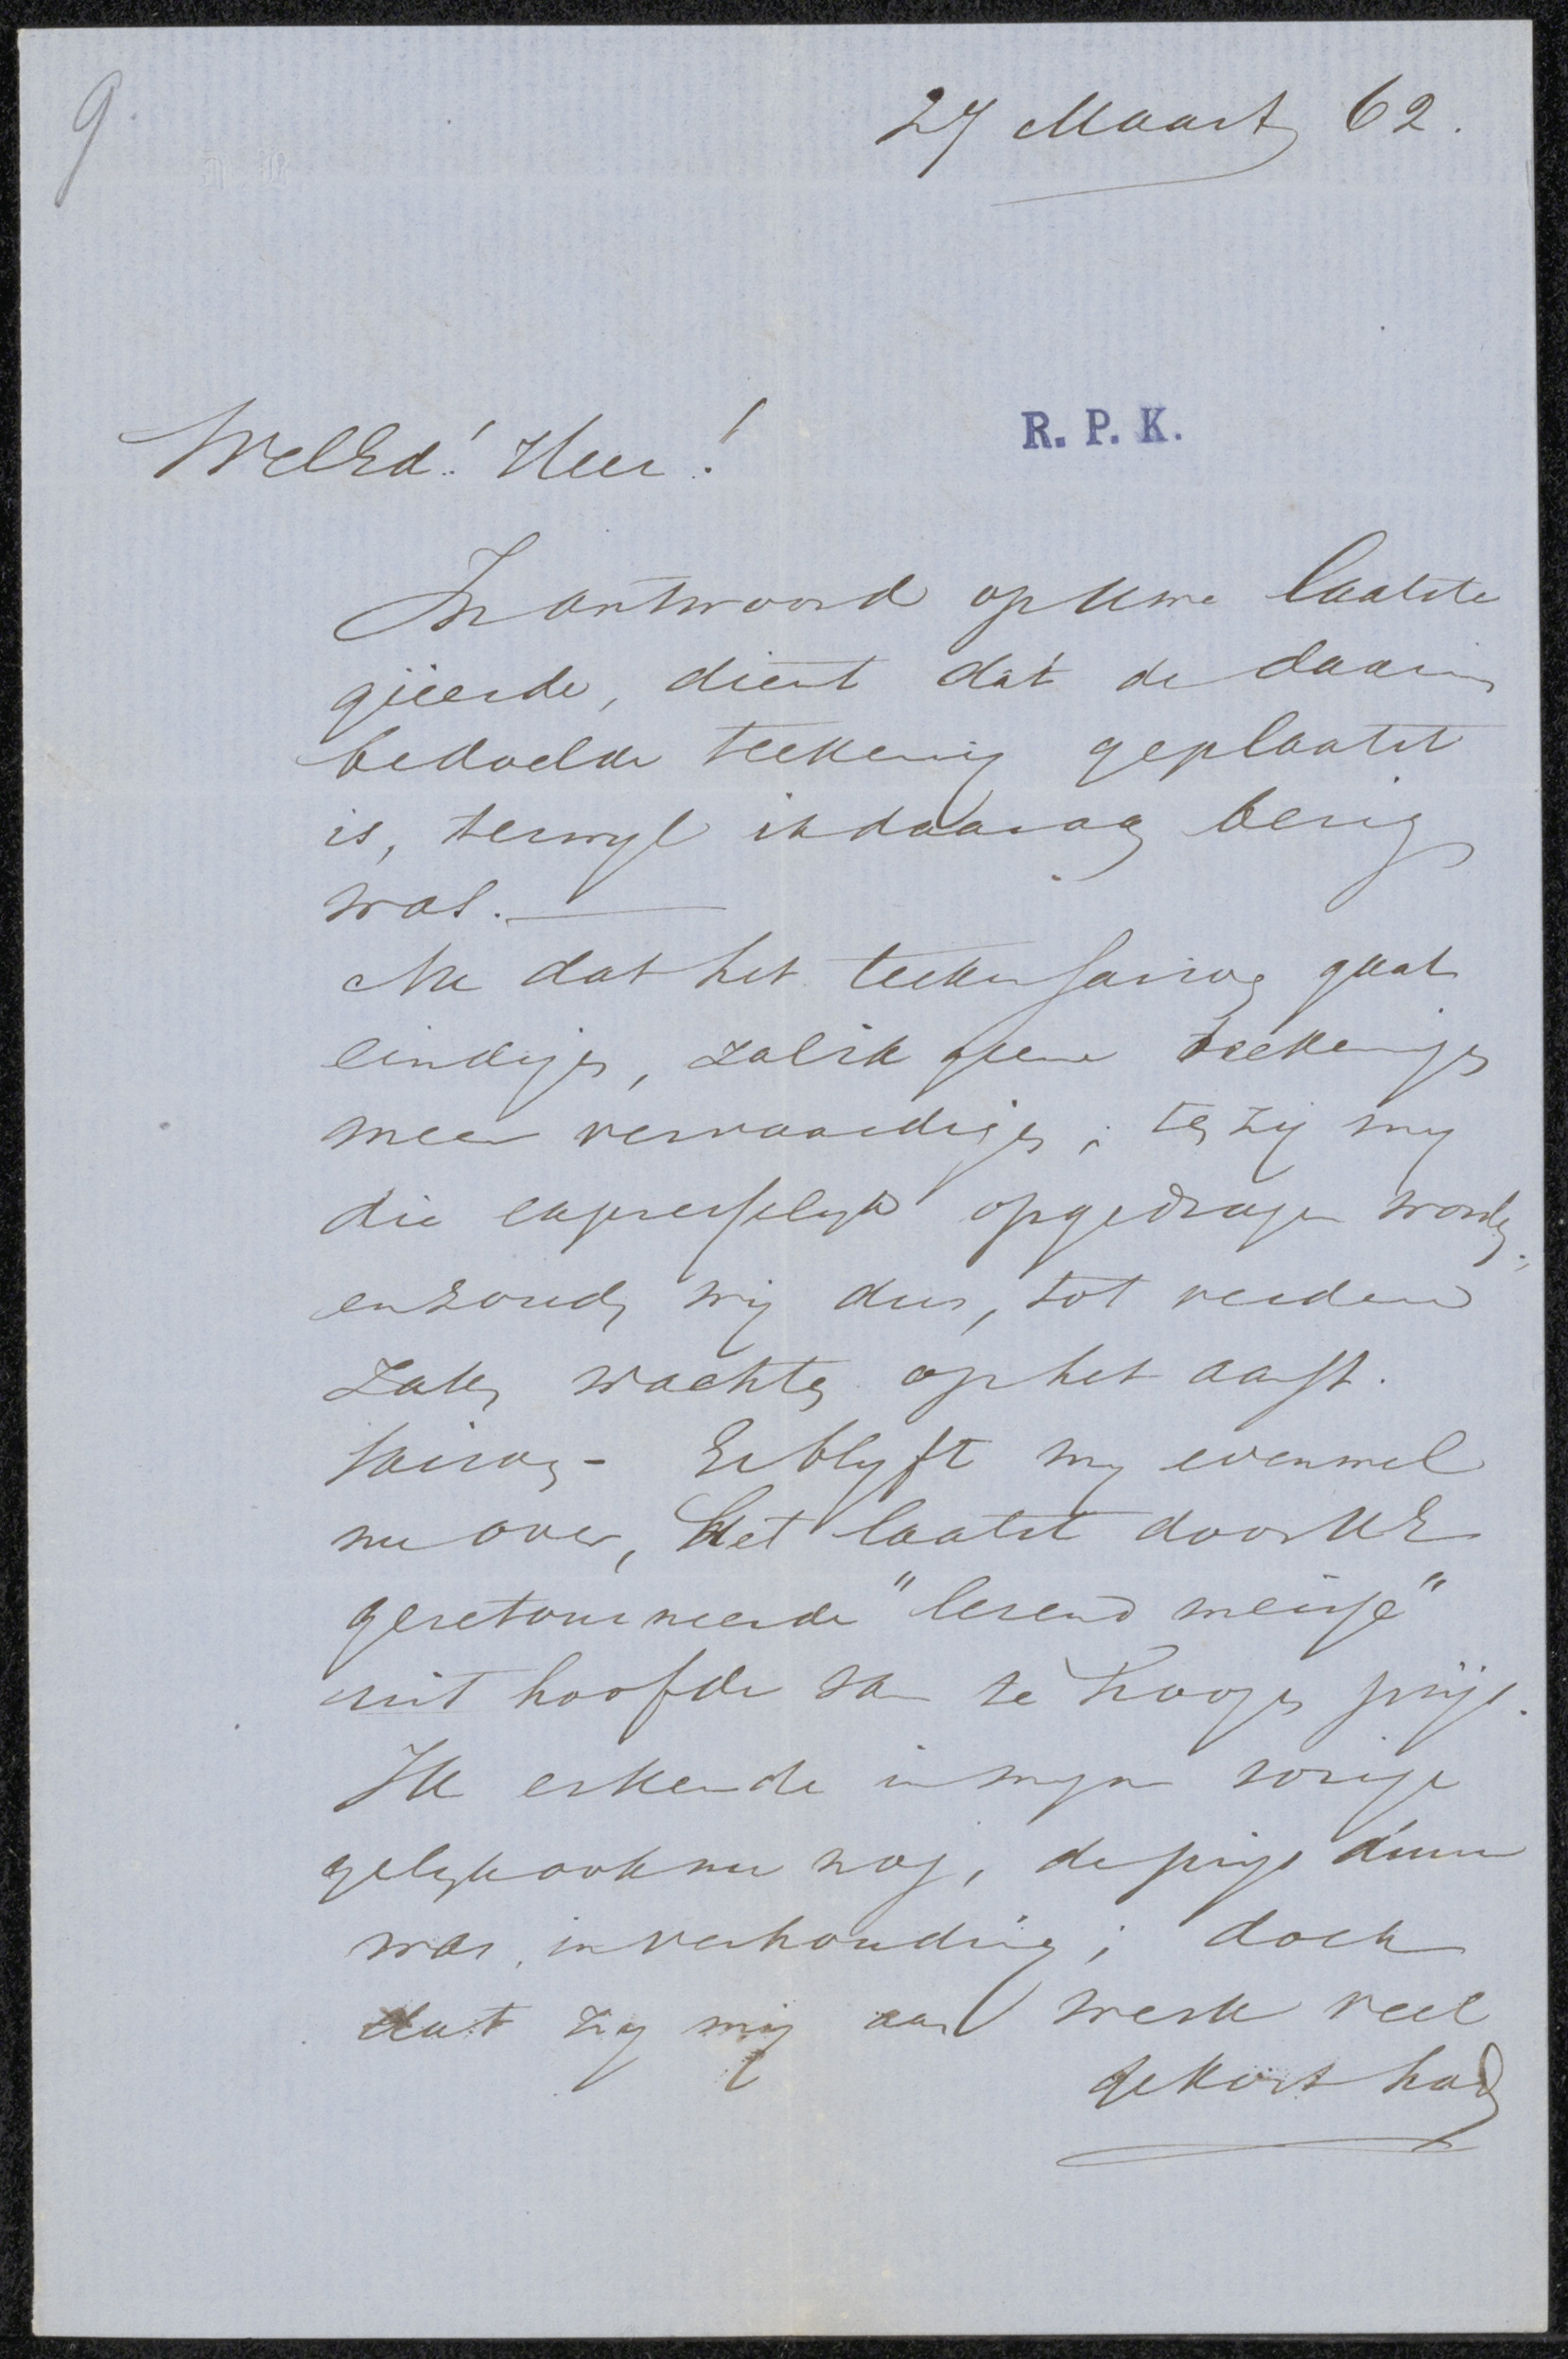 9.
27 Maart 62.
WelEd! Heer!
R. P. K.
In antwoord op Uwe laatste
geëerde, dient dat de daarin
bedoelde teekening geplaatst
is, terwyl ik daaraan bezig
was.—
Nu dat het teekensaison gaat
eindigen, zal ik geene teekeningen
meer vervaardigen; ten zij my
die expresselyk opgedragen worden;
en zoude wij dus, tot verdere
zaken wachten op het aanst.
saison - Er blyft my evenwel
nu over, het laatst door UE
geretourneerde "lezend meisje"
uit hoofde van te hoogen prijs.
Ik erkende in myn vorige
gelyk ook nu nog, de prijs duur
was, in verhouding; doch
dat zy mij aan werk veel
gekost had